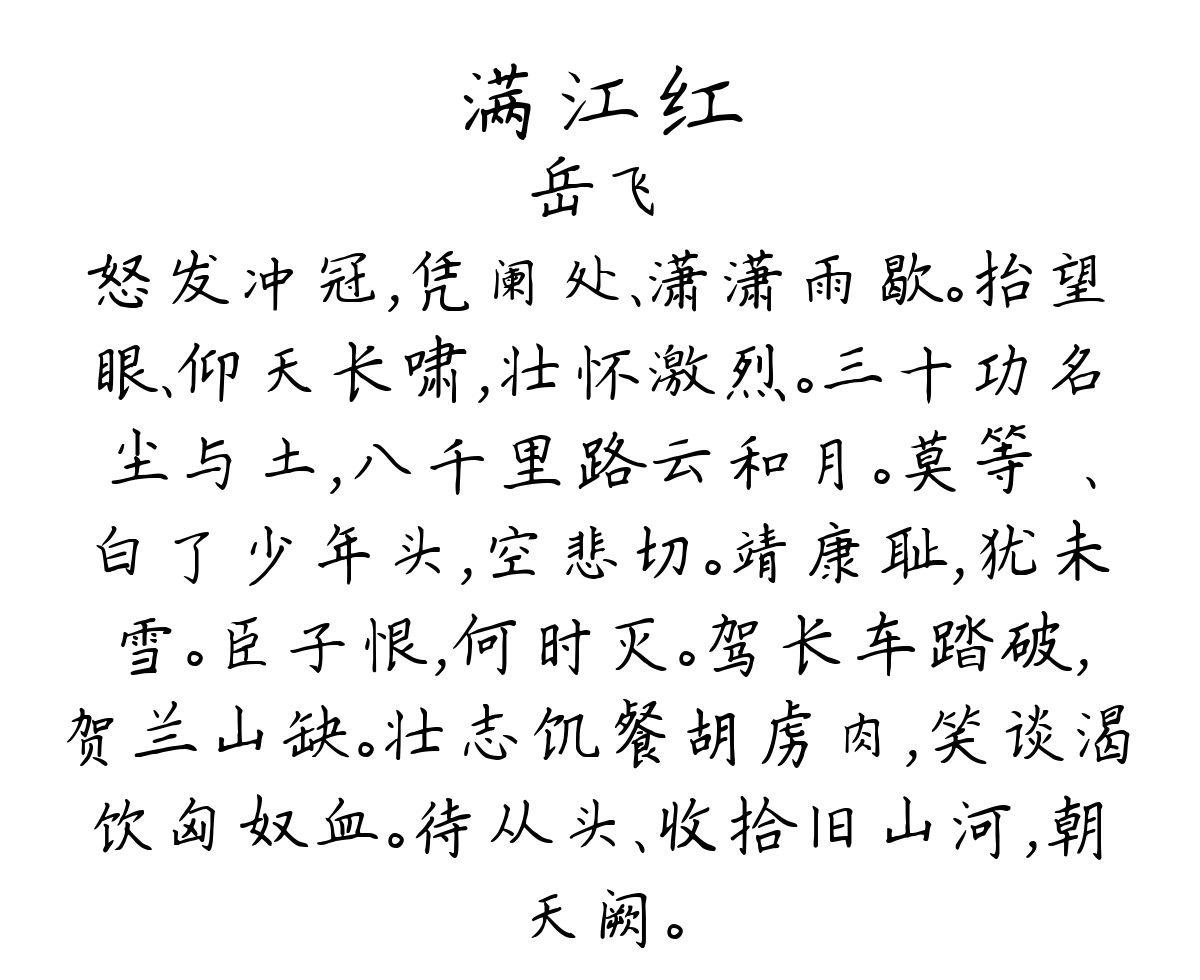 满江红
岳飞
怒发冲冠,凭阑处、潇潇雨歇。抬望
眼、仰天长啸,壮怀激烈、。三十功名
尘与土,八千里路云和月。莫等 、
白了少年头,空悲切。靖康耻,犹未
雪。臣子恨,何时灭。驾长车踏破,
贺兰山缺。壮志饥餐胡虏肉,笑谈渴
饮匈奴血。待从头、收拾旧山河,朝
天阙。